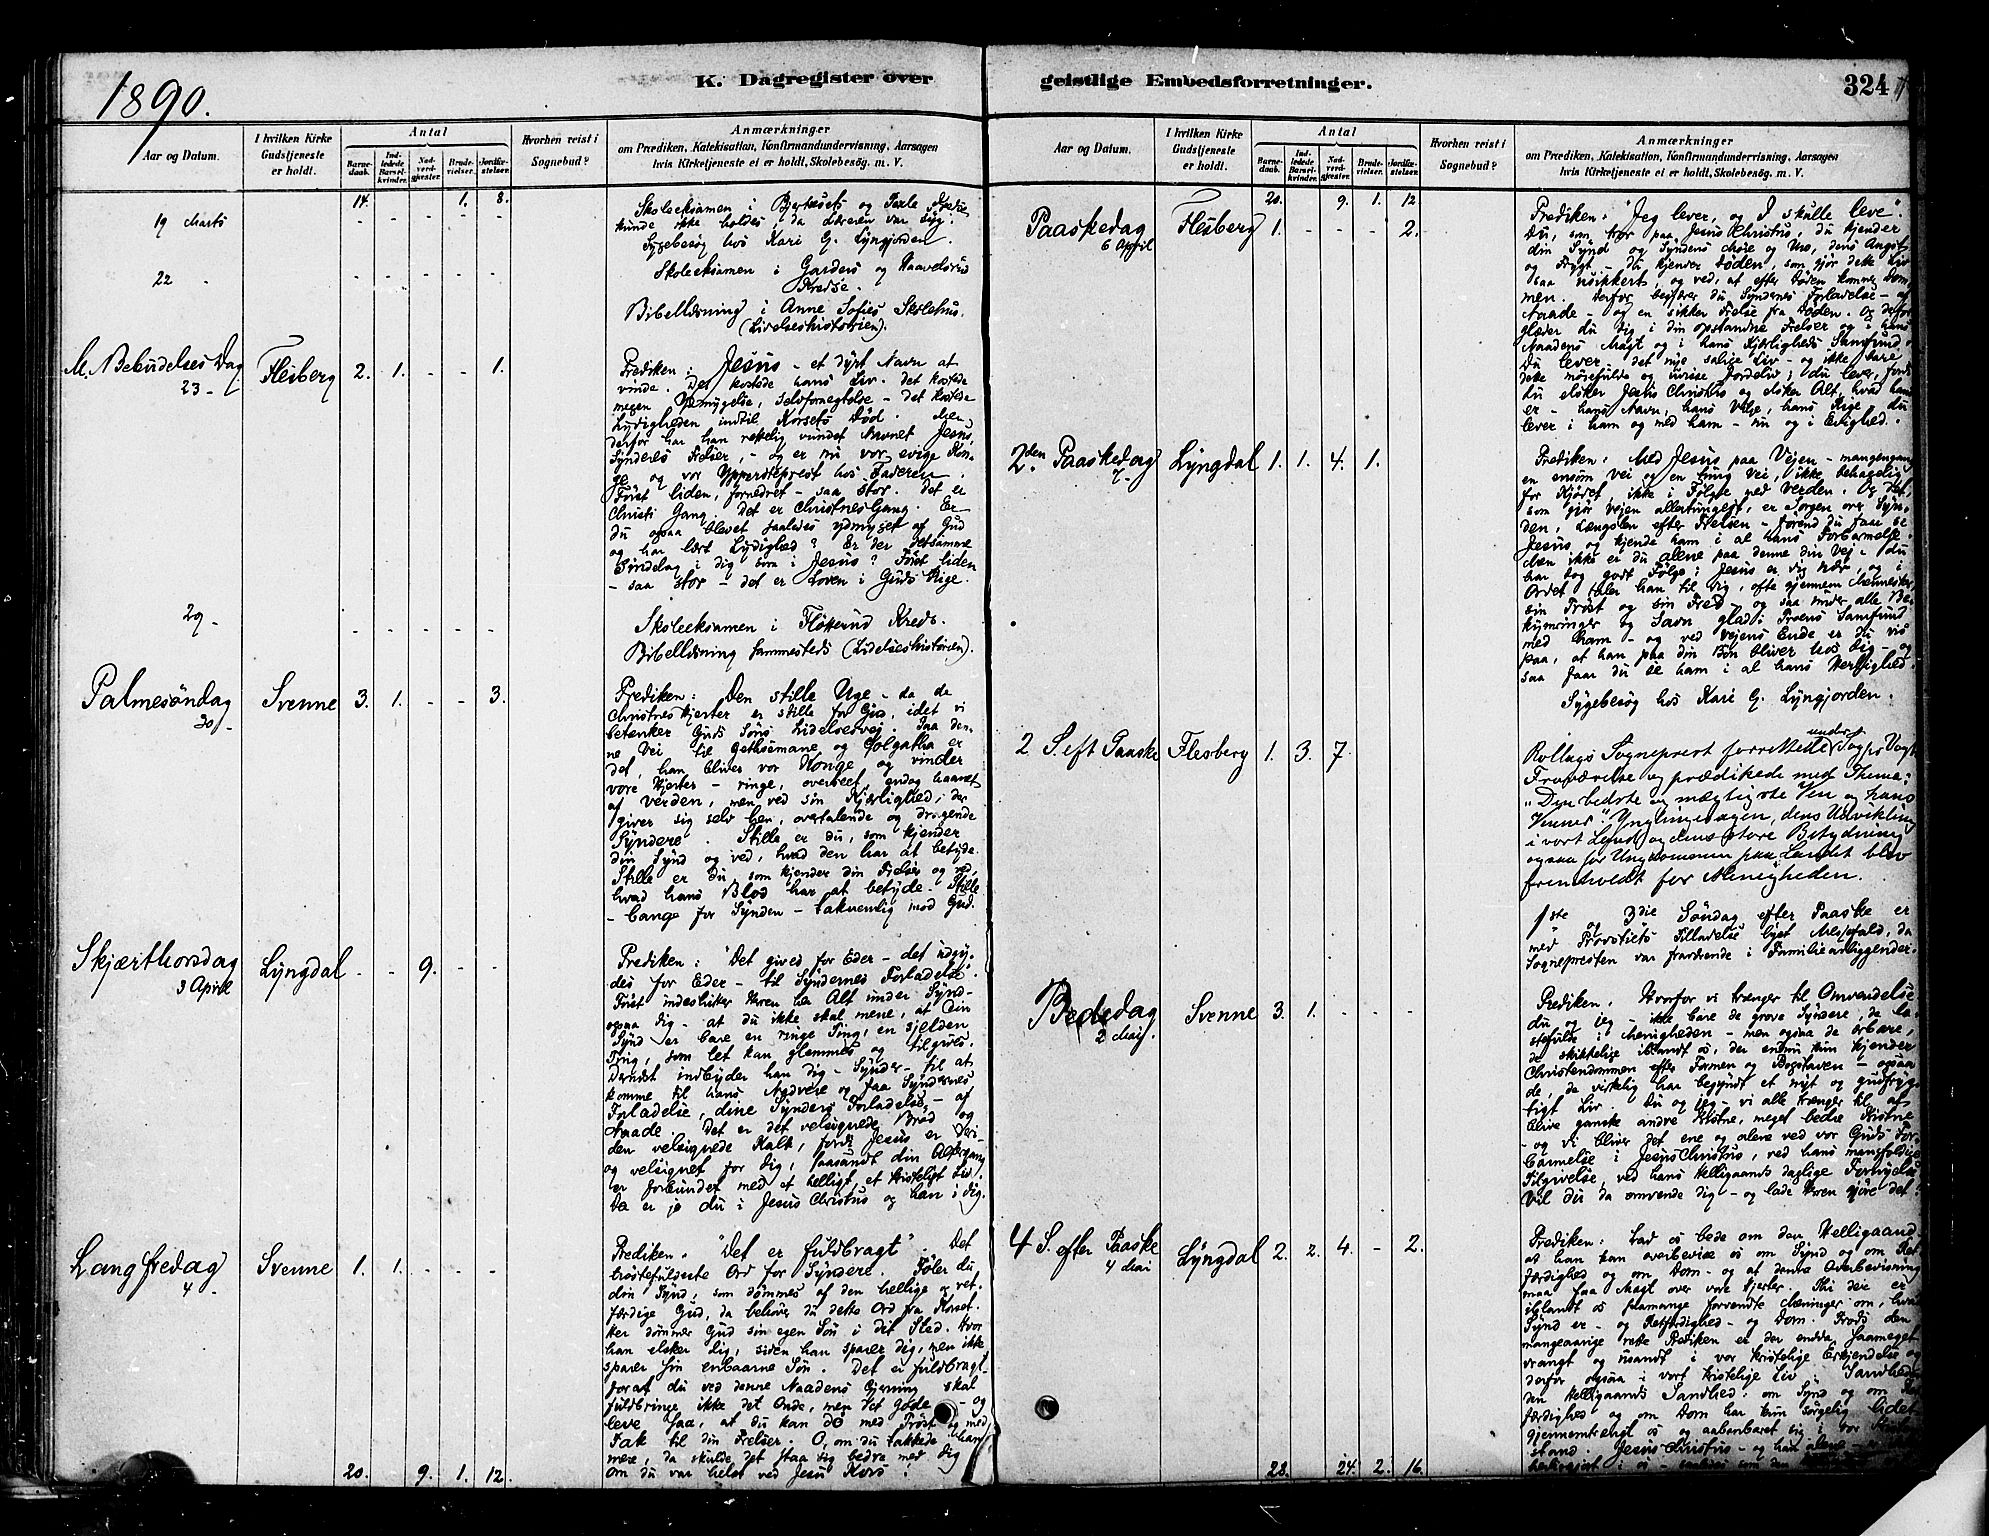 1890.
K. Dagregister over
Aar og Datum.
I hvilken Kirke Gudstjeneste er holdt.
Antal
Barnedaab.
Indledede Barselkvinder.
Nadverdgjæster.
Brudevielser.
Jordfæstelser.
Hvorhen reist i Sognebud?
Anmærkninger
om Prædiken, Katekisation, Konfirmandundervisning, Aarsagen
hvis Kirketjeneste ei er holdt, Skolebesög. m. V.
14. 1. 8.
19 Marts - - - - - Skoleeksamen i Bjertnæsets og
kunde ikke holdes, da Læreren var syg.
Sygebesøg hos Kari G. Lyngjorden.
22 - - - - - - Skoleeksamen i Gardens og Haavelsrud
Kredse.
Bibellæsning i Anne Sofies Skolehus.
(Lidelseshistorien).
M. Bebudelses Dag Flesberg 2. 1. - - 1.
23 -
Prediken: Jesus - et dyrt Navn at
vinde. Det kostede hans Liv. det kostede
megen Ydmygelse, Selvfornegtelse - det kostede
Lydigheden indtil Korsets Død. Men
derfor har han rettelig vundet Navnet Jesus,
Synderes Frelser, - og er nu vor evige Kon-
ge og vor Ypperstreprest hos Faderen.
Først liden, fornedret - saa stor. Det er
Christi Gang. Det er Christnes Gang. Er
du ogsaa blevet saaledes ydmyget af Gud
og har lært Lydighed? Er der detsamme
Sindelag i dig som i Jesus? Først liden
- saa stor - det er Loven i Guds Rige.
29 - - - - - - Skoleeksamen i Fløtterud Kreds.
Bibellæsning sammesteds (Lidelseshistorien).
Palmesøndag Svenne 3. 1. - - 3.
30 -
Prediken: Den stille Uge - da de
Christnes Hjerter er stille for Gud, idet vi
betenker Guds Søns Lidelsesvej. Paa den-
ne Vei til Gethsemane og Golgatha er
det, han bliver vor Konge og vinder
vore Hjerter - ringe, overseet, endog haanet
af Verden, men ved sin Kjærlighed, der
giver sig selv hen, overtalende og dragende
Syndere. Stille er du, som kjender
din Synd og ved, hvad den har at betyde.
Stille er du, som kjender din Frelser og ved,
hvad hans Blod har at betyde. Stille
- bange for Synden - taknemlig mod Gud.
Skjærthorsdag Lyngdal - - 9. - -
3 April
Prediken: "Det gives for Eder - det udgy-
des for Eder - til Syndernes Forladelse".
Først indeslutter Herren her Alt under Synd -
ogsaa dig - at du ikke skal mene, at Din
Synd er bare en ringe Ting, en sjelden
Ting, som let kan glemmes og tilgives.
Dernæst indbyder han dig - Synder - til at
komme til hans Nadvere og faa Syndernes
Forladelse, dine Synders Forladelse, - af
Naade. Det er det velsignede Brød og
den velsignede Kalk, fordi Jesus er
og velsignet for dig, saasandt din Altergang
er forbundet med et helligt, et kristeligt Liv.
Da er jo du i Jesus Christus og han i dig.
Langfredag Svenne 1. 1. - - -
4 -
Prediken. "Det er fuldbragt". Det
trøstefuldeste Ord for Syndere. Føler du
din Synd, som dømmes af den hellige og ret-
færdige Gud, da behøver du dette Ord fra Korset.
Her dømmer Gud sin egen Søn i dit Sted. Hvor
han elsker dig, siden han sparer dig, men ikke
sparer sin enbaarne Søn. Det er fuldbragt
forat du ved denne Naadens Gjerning skal
fuldbringe ikke det Onde, men det Gode - og
leve saa, at du kan dø med Trøst og med
Tak til din Frelser. O, om du takkede ham
mere, da skulde det staa sig bedre med dig
om du var helst ved Jesu Kors!
20. 9. 1. 12.
geistlige Embedsforretninger.
324
Aar og Datum.
I hvilken Kirke Gudstjeneste er holdt.
Antal
Barnedaab.
Indledede Barselkvinder.
Nadverdgjæster.
Brudevielser.
Jordfæstelser.
Hvorhen reist i Sognebud?
Anmærkninger
om Prædiken, Katekisation, Konfirmandundervisning, Aarsagen
hvis Kirketjeneste ei er holdt, Skolebesög. m. V.
20. 9. 1. 12
Paaskedag Flesberg 1. - - - 2.
6 April
Prediken: "Jeg lever, og I skulle leve".
Du, som tror paa Jesus Christus, du kjender
din Synd og Syndens Møie og Uro, dens Angst
og Frygt - du kjender Døden, som gjør dette Liv
saa usikkert, og ved, at efter Døden kommer Dom-
men. Derfor begjærer du Syndernes Forladelse - af
Naade - og en sikker Frelse fra Døden. Og derfor
glæder du dig i din opstandne Frelser og i hans
Naadens Magt og i hans Kjærligheds Samfund.
Du lever det nye salige Liv - og ikke bare
dette møiefulde og usikre Jordeliv; du lever, fordi
du elsker Jesus Christus og elsker Alt, hvad hans
er - hans Navn, hans Vilje, hans Rige - du
lever i ham og med ham - nu og i Evighed.
2den Paaskedag Lyngdal 1. 1. 4. 1.
7 -
Prediken: Med Jesus paa Vejen - mangengang
en ensom Vei og en tung Vei, ikke behagelig
for Kjødet, ikke i Følge med Verden. Og det,
som gjør Vejen allertungest, er Sorgen over Syn-
den, Længslen efter Frelsen - førend du faar se
Jesus og kjende ham i al hans Forbarmelse.
Men ikke er du alene paa denne din Vej - du
har dog godt Følge: Jesus er dig nær, og i
Ordet taler han til dig, ofte gjennem Mennesker,
sin Trøst og sin Fred - og saa under alle Be-
kymringer og Savn glad i Troens Samfund
med ham - og ved Vejens Ende er du vis
paa, at han paa din Bøn bliver hos dig - og
saa faar du se ham i al hans Herlighed.
Sygebesøg hos Kari G. Lyngjorden.
2 S. eft Paaske Flesberg 1. 3. 7.
Rollags Sogneprest forrettede under Sogpr Vogts
Fraværelse og prædikede med Thema:
"Den bedste og mægtigste Ven og hans
Venner". Ynglingesagen, dens Udvikling
i vort Land og dens store Betydning
ogsaa for Ungdommen paa Landet blev
fremholdt for Menigheden.
1ste og 3die Søndag efter Paaske er
med Provstiets Tilladelse lyst Messefald, da
Sognepresten var fraværende i Familieanliggender.
Bededag Svenne 3. 1. - - -
2 Mai.
Prediken. Hvorfor vi trænger til Omvendelse,
du og jeg - ikke bare de grove Syndere, de la-
stefulde i Menigheden - men ogsaa de ærbare,
de skikkelige iblandt os, der endnu kun kjender
Christendommen efter Formen og Bogstaven - ogsaa
de, da virkelig har begyndt et nyt og gudfryg-
tigt Liv. Du og jeg - vi alle trænger til at
blive ganske andre Kristne, meget bedre Kristne
- og vi bliver det ene og alene ved vor Guds For-
barmelse i Jesus Christus, ved hans mangfoldige
Tilgivelse, ved hans Helligaands daglige Fornyelse.
Vil du da omvende dig - og lade Herren gjøre det?
4 S. efter Paaske Lyngdal 2. 2. 4. - 2.
4 Mai
Prediken: Lad os bede om den Helligaand,
at han kan overbevise os om Synd og om Ret-
færdighed og om Dom - og at denne Overbevisning
maa faa Magt over vore Hjerter. Thi der er
iblandt os saamange forvendte Meninger om, hvad
Synd er - og Retfærdighed - og Dom. Trods den
mangeaarige rette Prediken er der endda saameget
vrangt og usandt i vor kristelige Erkjendelse og
derfor ogsaa i vort kristelige Liv. Sandheden
den Helligaands Sandhed: om Synd og om Ret-
færdighed og om Dom har kun sørgelig lidet
gjennemtrengt os og aabenbaret sig i vor
stand. Jesus Christus - og han alene
28. 24. 2. 16.